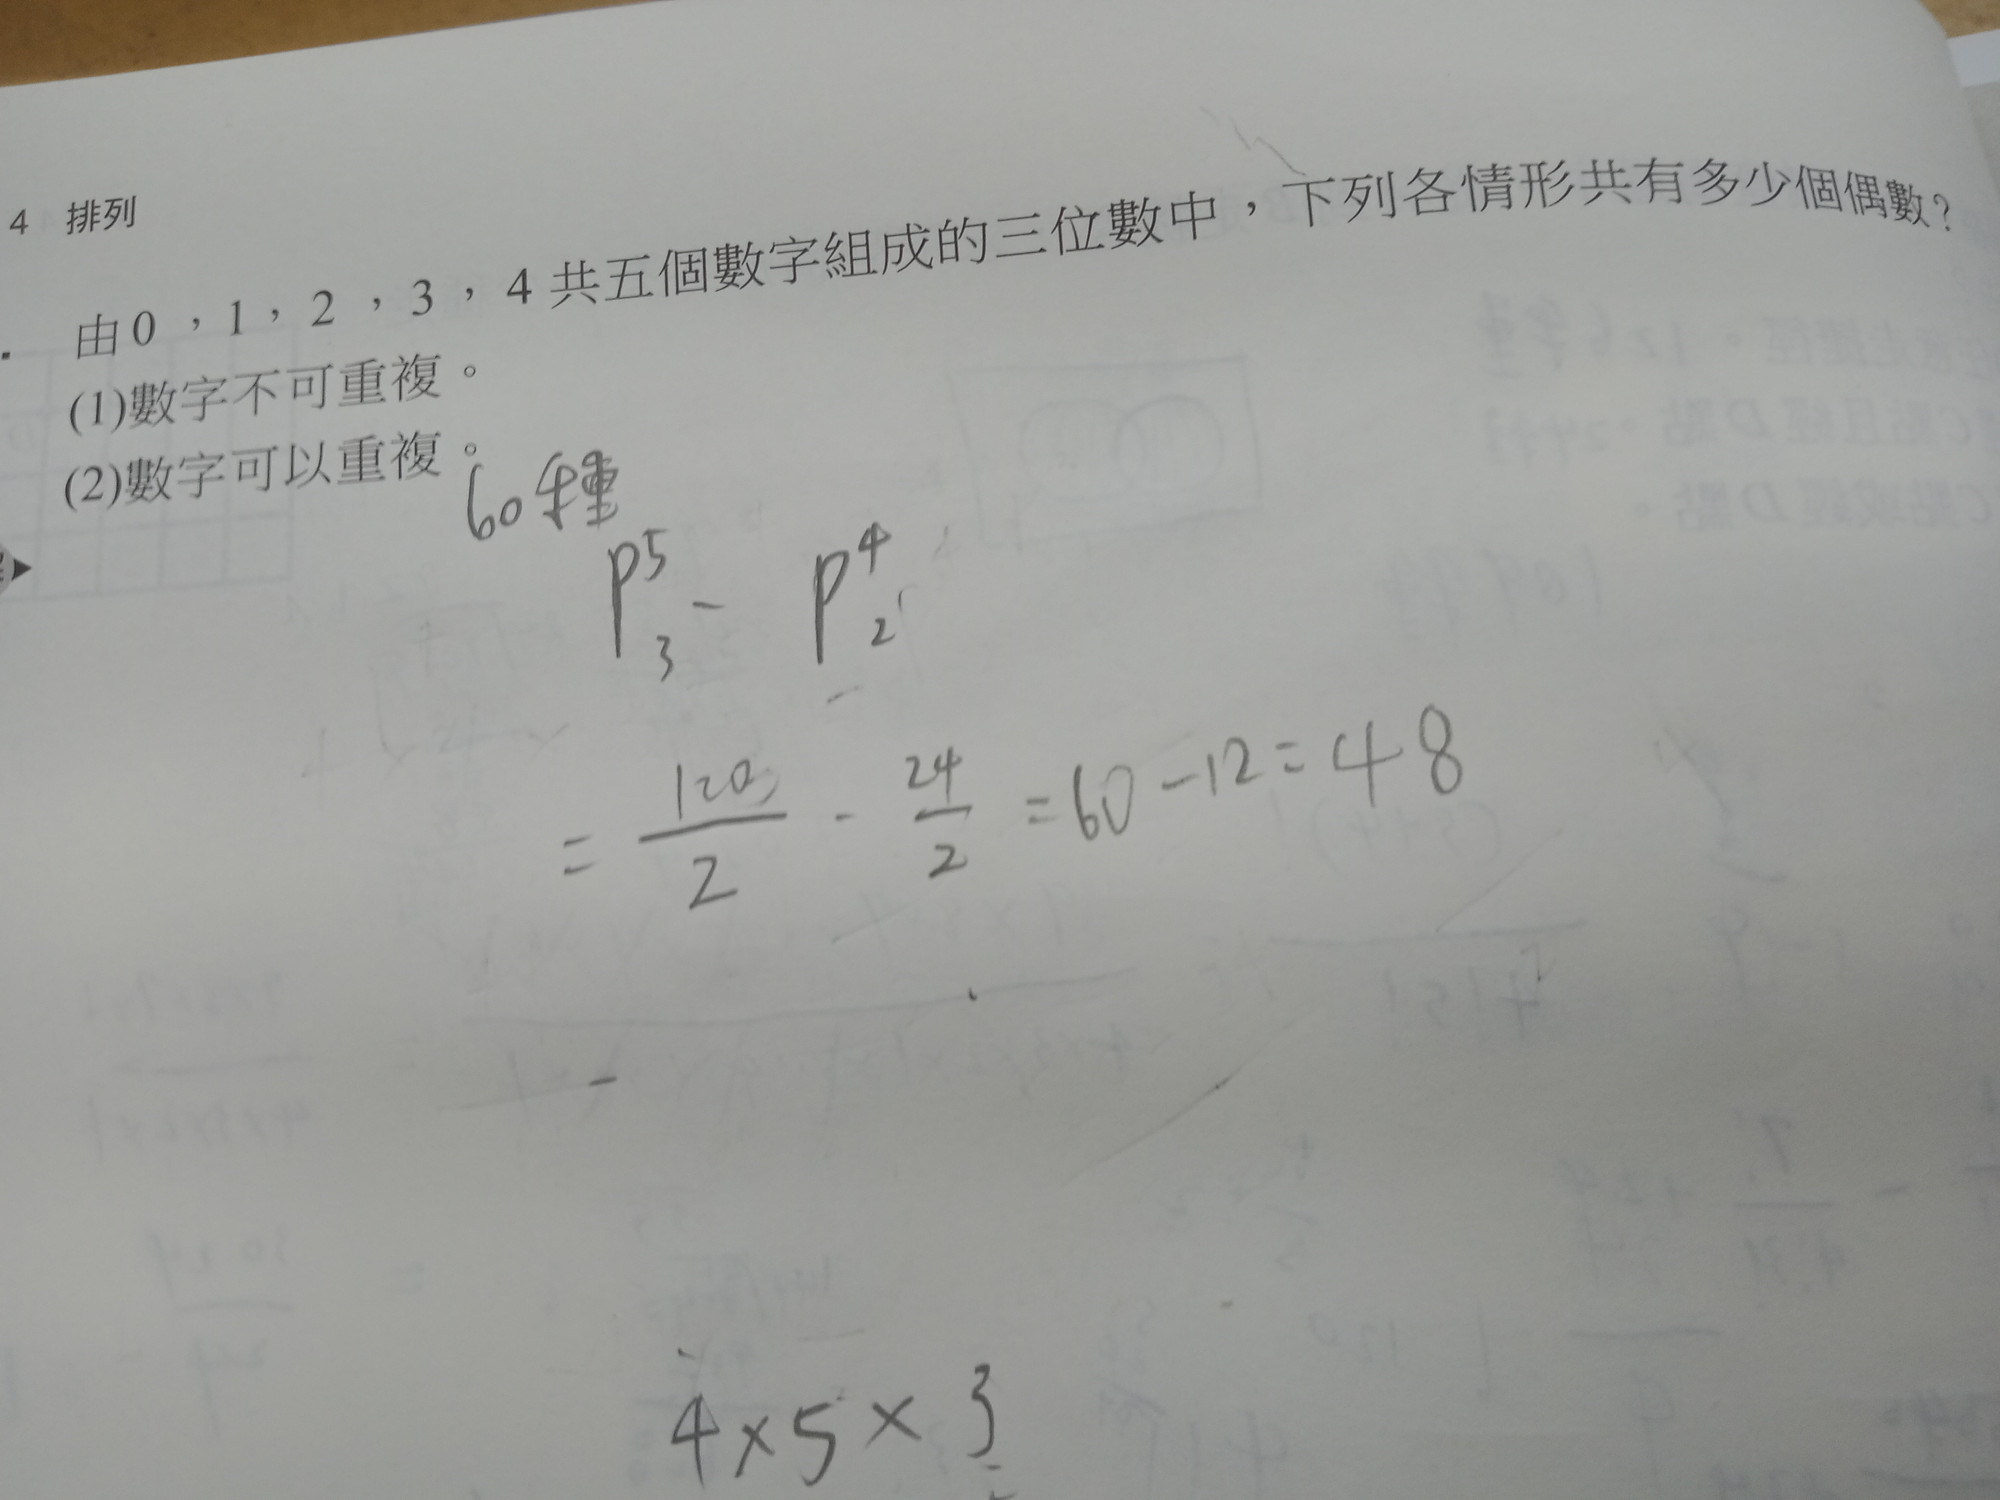 4 排列
由0，1，2，3，4共五個數字組成的三位數中，下列各情形共有多少個偶數？
(1)數字不可重複。
(2)數字可以重複。
60種
P⁵₃ - P⁴₂
= 120/2 - 24/2 = 60 - 12 = 48
4×5×3